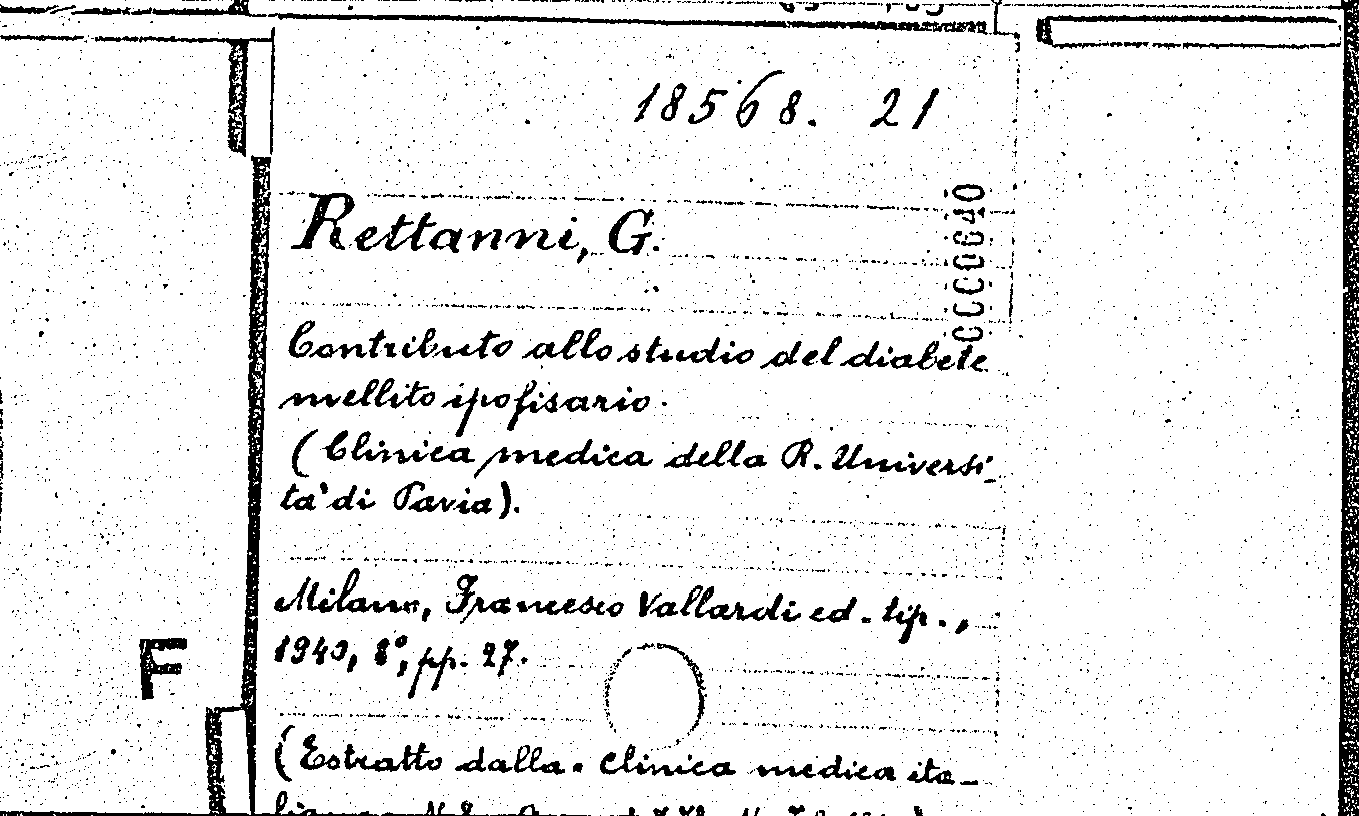 18568. 21
Rettanni, G.
0000640
Contributo allo studio del diabete
mellito ipofisario.
(Clinica medica della R. Universi-
tà di Pavia).
Milano, Francesco Vallardi ed. tip.,
1940, 8°, pp. 27.
F
(Estratto dalla. Clinica medica ita-